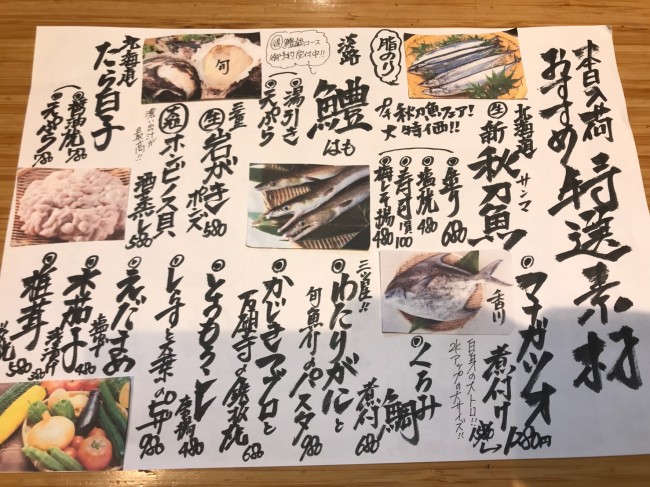 本日入荷
おすすめ特選素材
北海道
生
新秋刀魚
サンマ
造り 680
塩焼 480
寿司1貫 100
梅しそ揚 480
プチ秋刀魚フェア!
大特価!!
脂のり
淡路
鱧
はも
湯引き
天ぷら
鱧鍋コース
御予約受付中!!
旬
三重
生岩がき
ポンズ 580
大粒ホンビノス貝
酒蒸し 580
濃い出汁が
最高!!
北海道
たら白子
天ぷら 780
マナガツオ
香川
煮付け
1580
1280円
白身の大トロ!!
水アップの大サイズ!!
くろみ
鯛
煮付 680
三ツ星!!
わたりがにと
旬魚介のパスタ
980
かじきマグロと
万願寺の鉄板焼
680
とうもろこし
唐揚 480
しらすと大葉のピザ
980
えだまめ
塩ゆで
水茄子
浅漬け 480
椎茸
炭焼 580